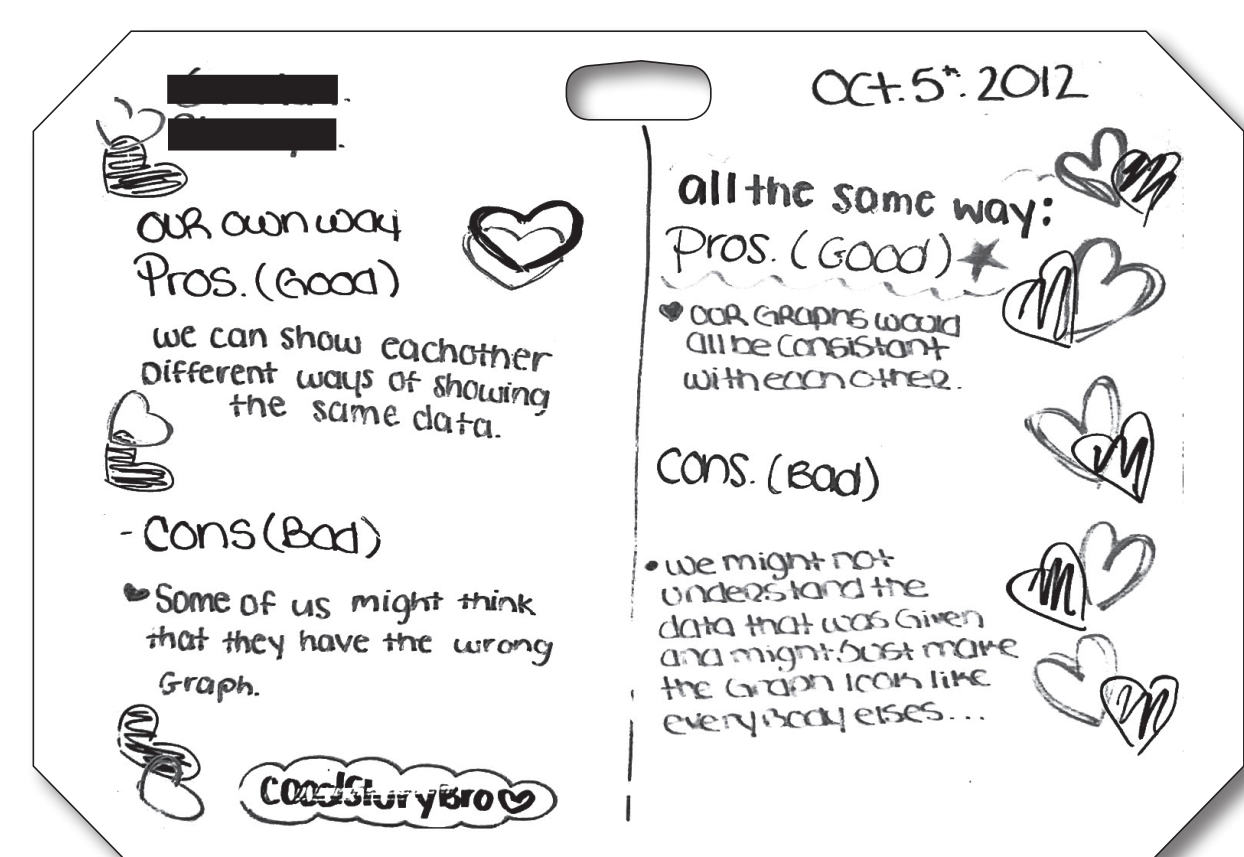 Oct. 5th. 2012
our own way
Pros. (Good)
we can show eachother
Different ways of showing
the same data.
- Cons (Bad)
Some of us might think
that they have the wrong
Graph.
all the same way:
Pros. (Good)
our Graphs would
all be Consistant
with each other.
Cons. (Bad)
• we might not
understand the
data that was Given
and might Just make
the Graph look like
everyBody elses...